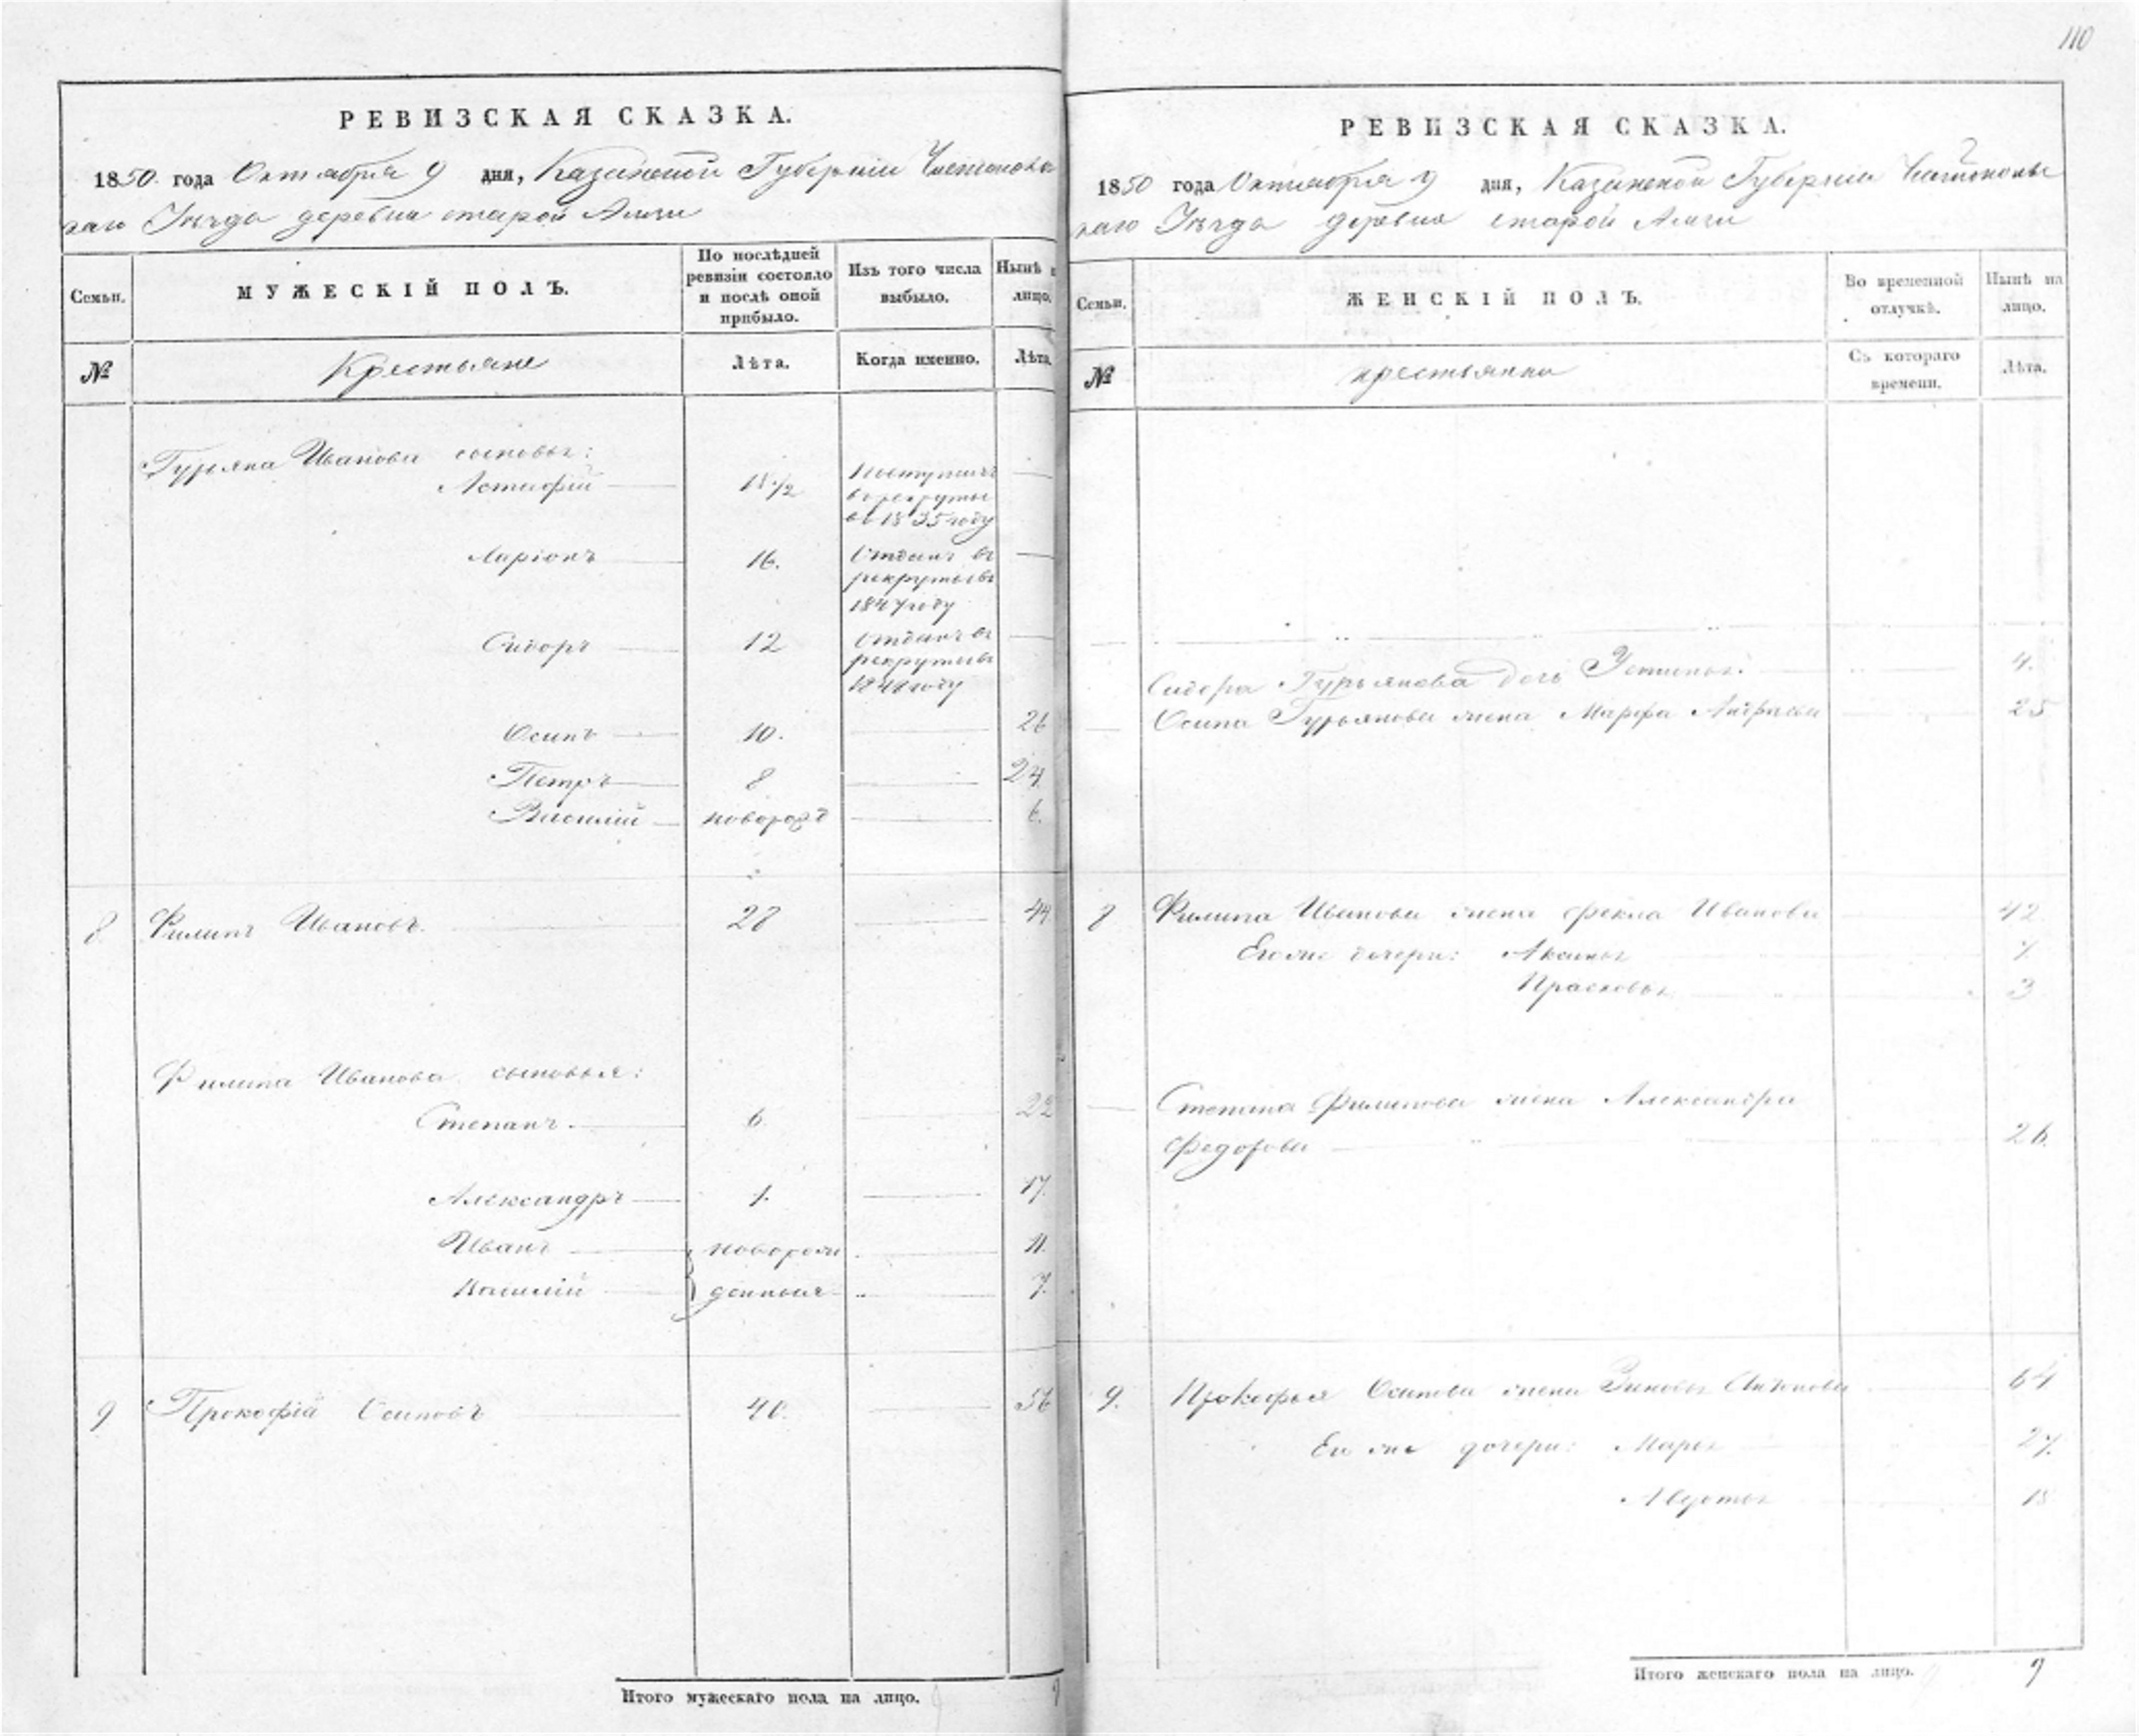 110
РЕВИЗСКАЯ СКАЗКА.
1850 года Октября 9 дня, Казанской Губерніи Чистополь
скаго Уѣзда деревни старой
Семьи.
МУЖЕСКІЙ ПОЛЪ.
По послѣдней ревизіи состояло и послѣ оной прибыло.
Изъ того числа выбыло.
Нынѣ
лицо.
№
Крестьяне
Лѣта.
Когда именно.
Лѣта.
Гурьяна Иванова сыновья:
18 1/2
Поступилъ
в рекруты
въ 1835 году
Ларіонъ
16.
Отданъ въ
рекруты въ
1847 году
Сидоръ
12
Отданъ въ
рекруты въ
году
Осипъ
10.
26
Петръ
8
24.
Василій
новорожд
6.
8
Филипъ Ивановъ.
28
44
Филипа Иванова сыновья:
Степанъ.
6
22
Александръ
1.
17.
Иванъ
новорож
11.
Василій
денные
7.
9
Прокофій Осиповъ
40.
56
Итого мужескаго пола на лицо.
9
РЕВИЗСКАЯ СКАЗКА.
1850 года Октября 9 дня, Казанской Губерніи Чистополь
скаго Уѣзда деревня старой
Семьи.
ЖЕНСКІЙ ПОЛЪ.
Во временной отлучкѣ.
Нынѣ на лицо.
№
крестьянки
Съ котораго времени.
Лѣта.
Сидора Гурьянова дочь Устинья.
4.
Осипа Гурьянова жена Марфа
25
8
Филипа Иванова жена Фекла Иванова
42
Его же дочери: Аксинья
Прасковья
3
Степана Филипова жена Александра
Федорова
26.
9.
Прокофья Осипова жена Зиновья Антонова
64
Его же дочери: Марья
27.
Авдотья
18
Итого женскаго пола на лицо.
9